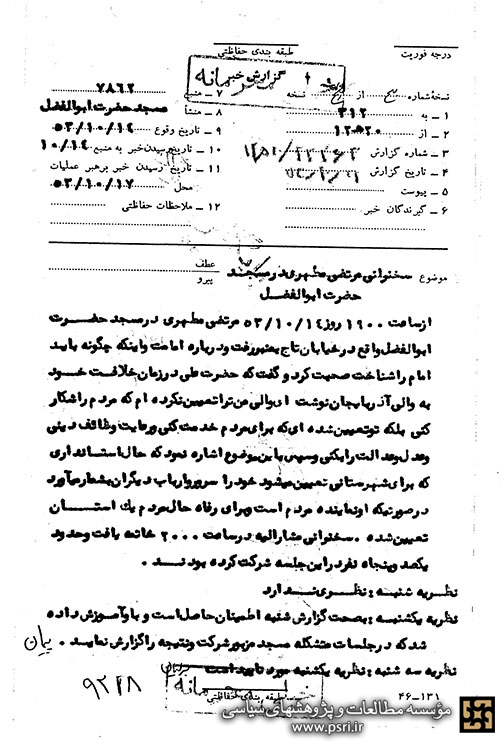 طبقه بندی حفاظتی
درجه فوریت
گزارش خبر
محرمانه
نسخه شماره از نسخه
۱ – به ۳۱۲
۲ – از ۱۲ ه‍ ۲۰
۳ – شماره گزارش
۴ – تاریخ گزارش
۵ – پیوست
۶ – گیرندگان خبر
۷ – منبع ۷۸۶۲
۸ – منشأ مسجد حضرت ابوالفضل
۹ – تاریخ وقوع ۵۳/۱۰/۱۴
۱۰ – تاریخ رسیدن خبر به منبع ۱۰/۱۴
۱۱ – تاریخ رسیدن خبر برهبر عملیات
محل ۵۳/۱۰/۱۷
۱۲ – ملاحظات حفاظتی
موضوع سخنرانی مرتضی مطهری در مسجد
حضرت ابوالفضل
عطف
پیرو
از ساعت ۱۹۰۰ روز ۵۳/۱۰/۱۴ مرتضی مطهری در مسجد حضرت
ابوالفضل واقع در خیابان تاج بمنبر رفت و درباره امامت و اینکه چگونه باید
امام را شناخت صحبت کرد و گفت که حضرت علی در زمان خلافت خود
به والی آذربایجان نوشت ای والی من ترا تعیین نکرده ام که مردم را شکار
کنی بلکه تو تعیین شده ای که برای مردم خدمت کنی و رعایت وظائف دینی
وعدل و عدالت را بکنی و سپس باین موضوع اشاره نمود که حال استانداری
که برای شهرستانی تعیین میشود خود را سرور و ارباب دیگران بشمار میآورد
در صورتیکه او نماینده مردم است و برای رفاه حال مردم یك استان
تعیین شده . سخنرانی مشارالیه در ساعت ۲۰۰۰ خاتمه یافت و حدود
یکصد و پنجاه نفر در این جلسه شرکت کرده بودند .
نظریه شنبه : نظری ندارد
نظریه یکشنبه : بصحت گزارش شنبه اطمینان حاصل است و باو آموزش داده
شد که در جلسات متشکله مسجد مزبور شرکت و نتیجه را گزارش نماید .
نظریه سه شنبه : نظریه یکشنبه مورد تایید است
۹۲۲۸
محرمانه
طبقه بندی حفاظتی
۴۶–۱۳۱
مؤسسه مطالعات و پژوهشهای سیاسی
www.psri.ir